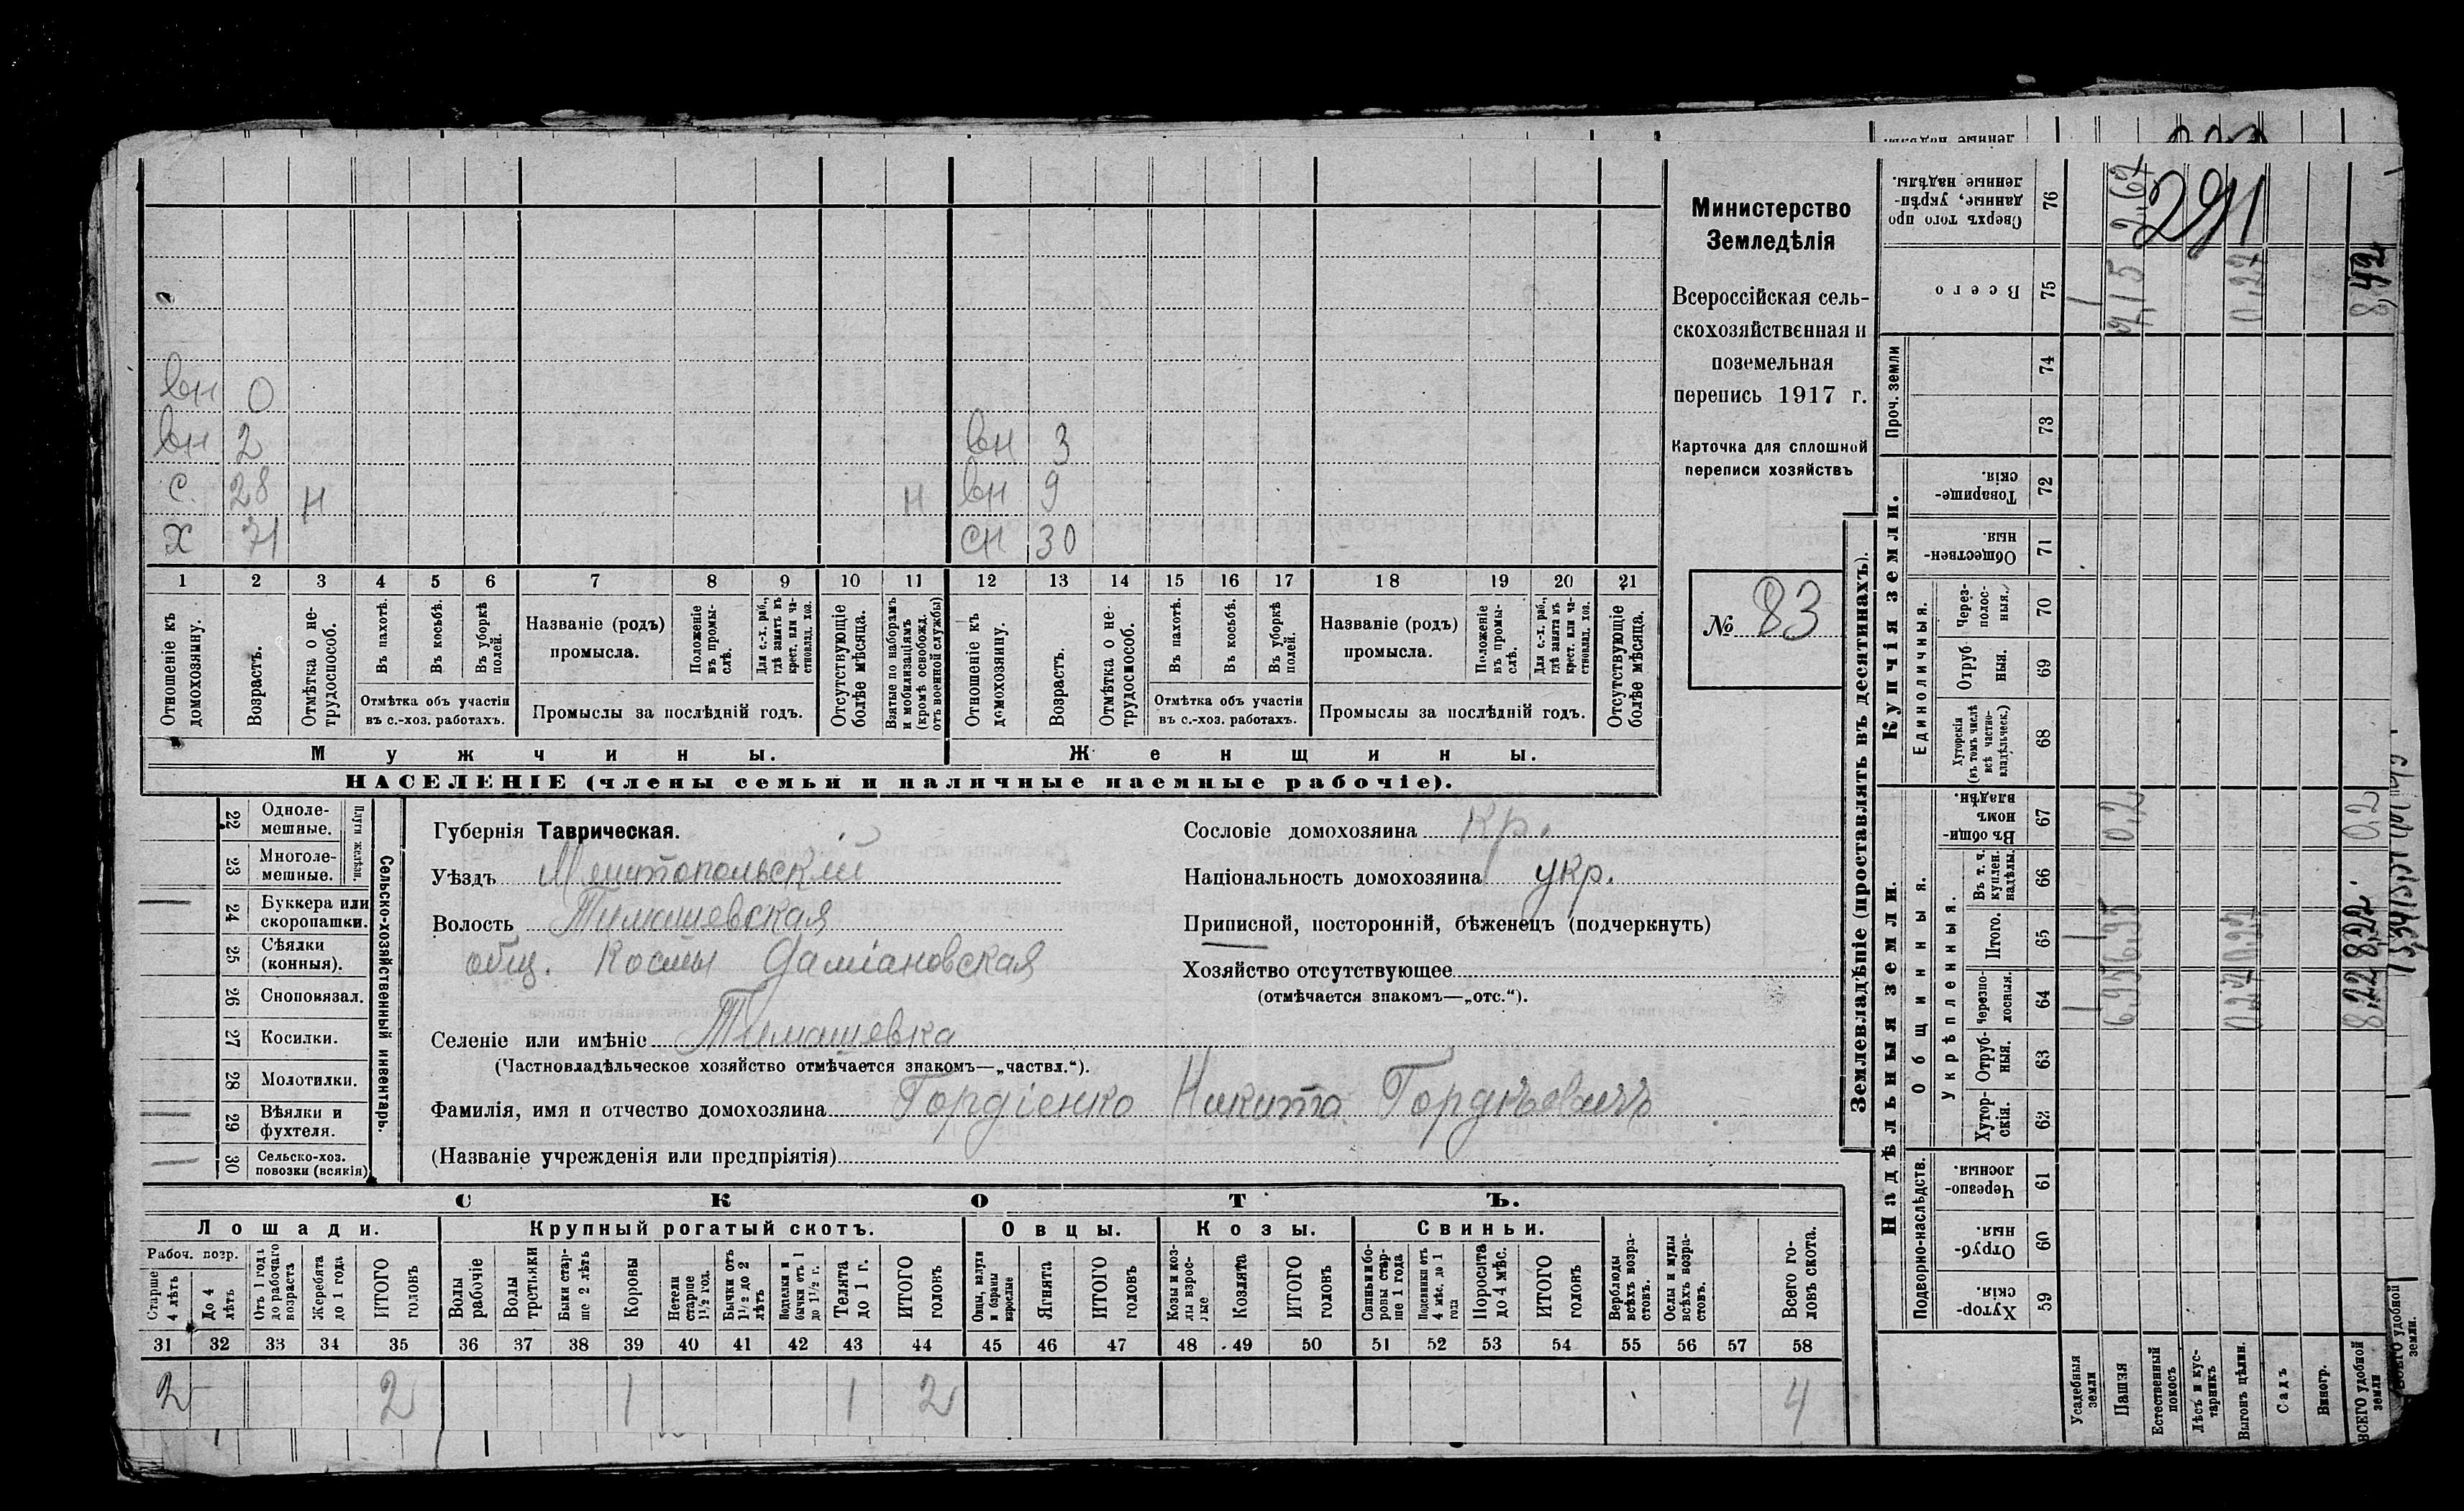 вн 0
вн 2 вн 3
с. 28 н н вн 9
х 71 сн 30
1 2 3 4 5 6 7 8 9 10 11 12 13 14 15 16 17 18 19 20 21
Отношеніе къ домохозяину.
Возрастъ.
Отмѣтка о не-трудоспособ.
Въ пахотѣ.
Въ косьбѣ.
Въ уборкѣ полей.
Отмѣтка объ участіи
въ с.-хоз. работахъ.
Названіе (родъ)
промысла.
Положеніе въ промы-слѣ.
Для с.-х. раб., гдѣ занятъ въ крест. или ча-стновлад. хоз.
Промыслы за послѣдній годъ.
Отсутствующіе болѣе мѣсяца.
Взятые по наборамъ и мобилизаціямъ (кромѣ освобожд. отъ военной службы)
Отношеніе къ домохозяину.
Возрастъ.
Отмѣтка о не-трудоспособ.
Въ пахотѣ.
Въ косьбѣ.
Въ уборкѣ полей.
Отмѣтка объ участіи
въ с.-хоз. работахъ.
Названіе (родъ)
промысла.
Положеніе въ промы-слѣ.
Для с.-х. раб., гдѣ занята въ крест. или ча-стновлад. хоз.
Промыслы за послѣдній годъ.
Отсутствующіе болѣе мѣсяца.
Мужчины. Женщины.
НАСЕЛЕНІЕ (члены семьи и наличные наемные рабочіе).
Министерство
Земледѣлія
Всероссійская сель-
скохозяйственная и
поземельная
перепись 1917 г.
Карточка для сплошной
переписи хозяйствъ
№ 83
Сельско-хозяйственный инвентарь.
Плуги желѣзн.
22 Одноле-мешные.
23 Многоле-мешные.
24 Буккера или скоропашки.
25 Сѣялки (конныя).
26 Сноповязал.
27 Косилки.
28 Молотилки.
29 Вѣялки и фухтеля.
30 Сельско-хоз. повозки (всякія)
Губернія Таврическая.
Уѣздъ Мелитопольскій
Волость Тимашевская
общ. Косты Даміановская
Селеніе или имѣніе Тимашевка
(Частновладѣльческое хозяйство отмѣчается знакомъ—„частвл.“).
Фамилія, имя и отчество домохозяина Гордіенко Никита Гордѣевичъ
(Названіе учрежденія или предпріятія)
Сословіе домохозяина кр.
Національность домохозяина укр.
Приписной, посторонній, бѣженецъ (подчеркнуть)
Хозяйство отсутствующее
(отмѣчается знакомъ—„отс.“).
СКОТЪ.
Лошади. Крупный рогатый скотъ. Овцы. Козы. Свиньи.
Рабоч. возр.
Старше 4 лѣтъ
До 4 лѣтъ
Отъ 1 года до рабочаго возраста
Жеребята до 1 года
ИТОГО головъ
Волы рабочіе
Волы третьяки
Быки стар-ше 2 лѣтъ
Коровы
Нетели старше 1 1/2 год.
Бычки отъ 1 1/2 до 2 лѣтъ
Подтелки и бычки отъ 1 до 1 1/2 г.
Телята до 1 г.
ИТОГО головъ
Овцы, валухи и бараны взрослые
Ягнята
ИТОГО головъ
Козы и коз-лы взрос-лые
Козлята
ИТОГО головъ
Свиньи и бо-ровы стар-ше 1 года
Подсвинки отъ 4 мѣс. до 1 года
Поросята до 4 мѣс.
ИТОГО головъ
Верблюды всѣхъ возра-стовъ.
Ослы и мулы всѣхъ возра-стовъ.
Всего го-ловъ скота.
31 32 33 34 35 36 37 38 39 40 41 42 43 44 45 46 47 48 49 50 51 52 53 54 55 56 57 58
2 2 1 1 2 4
Землевладѣніе (проставлять въ десятинахъ).
Надѣльныя земли. Купчія земли. Проч. земли
Подворно-наслѣдств.
Общинныя.
Укрѣпленныя.
Единоличныя.
59 Хутор-скія.
60 Отруб-ныя.
61 Черезпо-лосныя.
62 Хутор-скія.
63 Отруб-ныя.
64 Черезпо-лосныя.
65 Итого.
66 Въ т. ч. куплен. надѣлы.
67 Въ общи-номъ владѣн.
68 Хуторскія (въ томъ числѣ всѣ частно-владѣльческ.)
69 Отруб-ныя.
70 Через-полос-ныя.
71 Обществен-ныя.
72 Товарище-скія.
73
74
75 Всего
76 Сверхъ того про-данные, укрѣп-ленные надѣлы.
Усадебныя земли 1 1 1
Пашня 6,95 6,95 0,2 7,15 2,67
Естественный покосъ
Лѣсъ и кус-тарникъ
Выгонъ цѣлин. 0,27 0,27 0,27
Садъ
Виногр.
ВСЕГО удобной земли 8,22 8,22 0,2 8,42
291
ВСЕГО удобной земли.